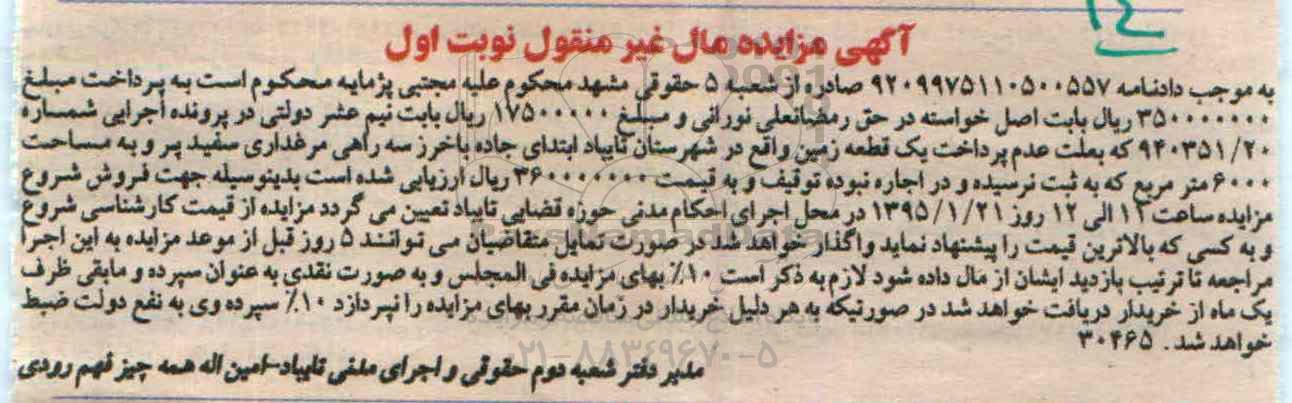 ۱۴
آگهی مزایده مال غیر منقول نوبت اول
به موجب دادنامه ۹۲۰۹۹۷۵۱۱۰۵۰۰۵۵۷ صادره از شعبه ۵ حقوقی مشهد محکوم علیه مجتبی پژمایه محکوم است به پرداخت مبلغ
۳۵۰۰۰۰۰۰۰ ریال بابت اصل خواسته در حق رمضانعلی نورانی و مبلغ ۱۷۵۰۰۰۰۰ ریال بابت نیم عشر دولتی در پرونده اجرایی شماره
۹۴۰۳۵۱/۲۰ که بعلت عدم پرداخت یک قطعه زمین واقع در شهرستان تایباد ابتدای جاده باخرز سه راهی مرغداری سفید پر و به مساحت
۶۰۰۰ متر مربع که به ثبت نرسیده و در اجاره نبوده توقیف و به قیمت ۳۶۰۰۰۰۰۰۰ ریال ارزیابی شده است بدینوسیله جهت فروش شروع
مزایده ساعت ۱۱ الی ۱۲ روز ۱۳۹۵/۱/۲۱ در محل اجرای احکام مدنی حوزه قضایی تایباد تعیین می گردد مزایده از قیمت کارشناسی شروع
و به کسی که بالاترین قیمت را پیشنهاد نماید واگذار خواهد شد در صورت تمایل متقاضیان می توانند ۵ روز قبل از موعد مزایده به این اجرا
مراجعه تا ترتیب بازدید ایشان از مال داده شود لازم به ذکر است ۱۰٪ بهای مزایده فی المجلس و به صورت نقدی به عنوان سپرده و مابقی ظرف
یک ماه از خریدار دریافت خواهد شد در صورتیکه به هر دلیل خریدار در زمان مقرر بهای مزایده را نپردازد ۱۰٪ سپرده وی به نفع دولت ضبط
خواهد شد. ۳۰۴۶۵
۰۲۱-۸۸۳۴۹۶۷۰-۵
مدیر دفتر شعبه دوم حقوقی و اجرای مدنی تایباد-امین اله همه چیز فهم رودی